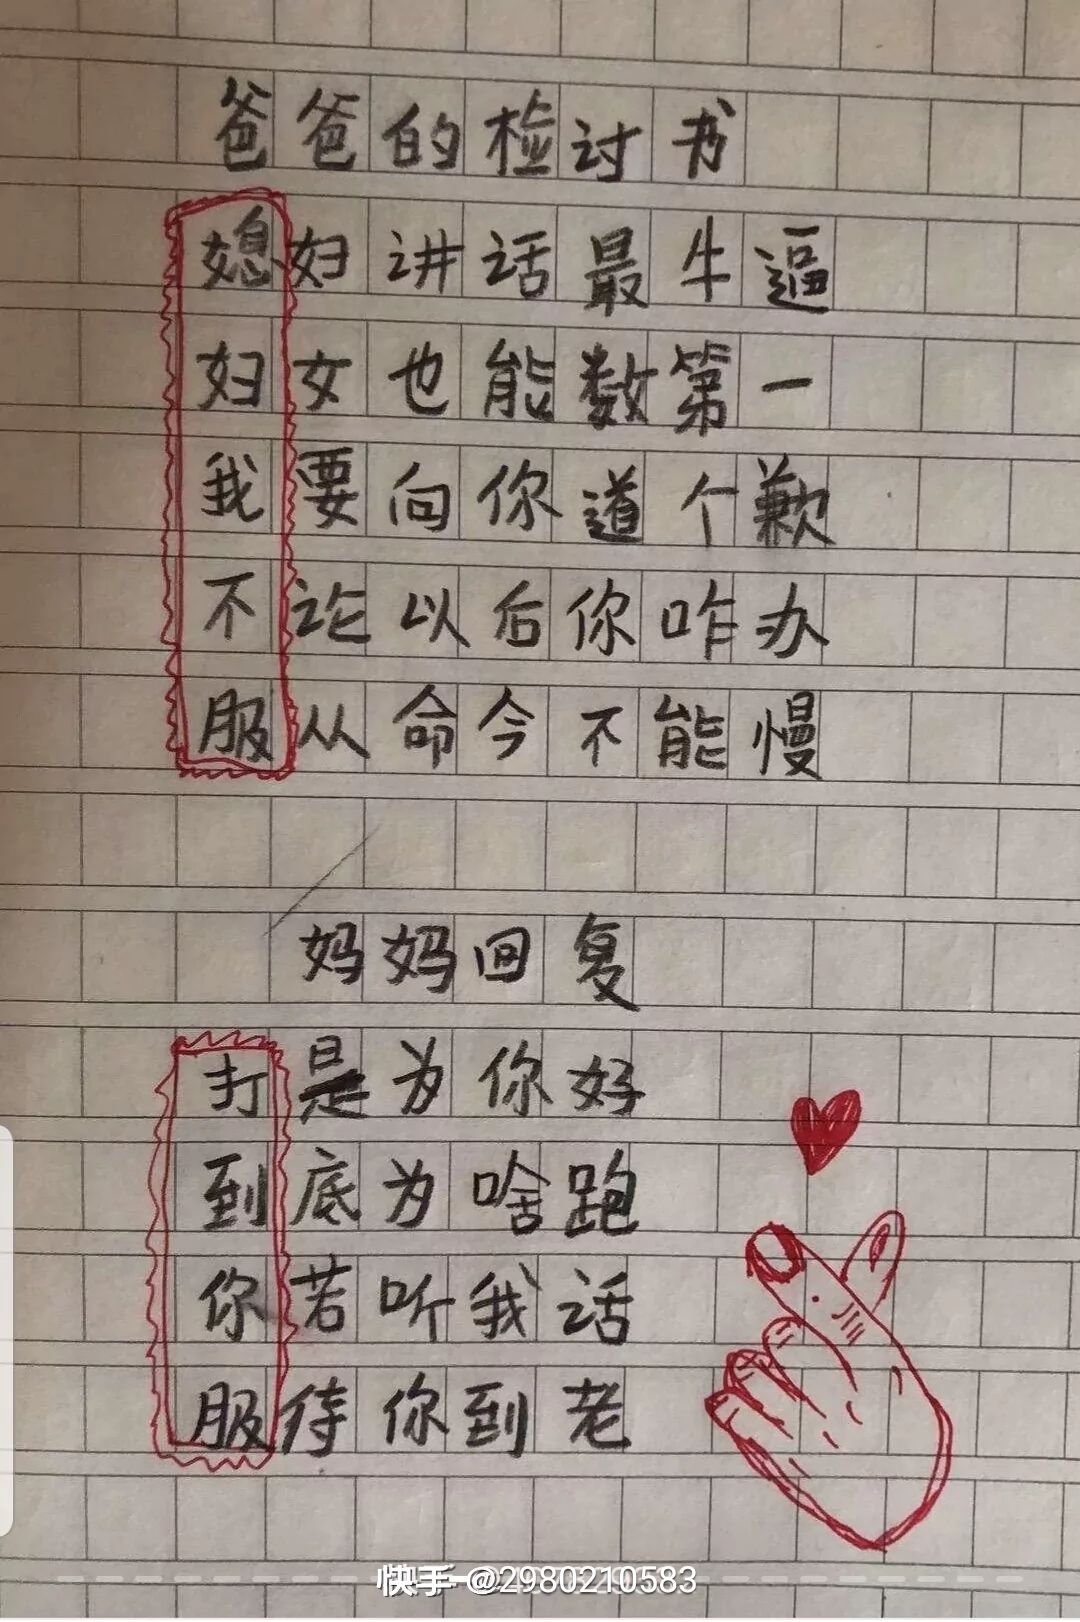 爸爸的检讨书
媳妇讲话最牛逼
妇女也能数第一
我要向你道个歉
不论以后你咋办
服从命今不能慢
妈妈回复
打是为你好
到底为啥跑
你若听我话
服待你到老
快手 @2980210583